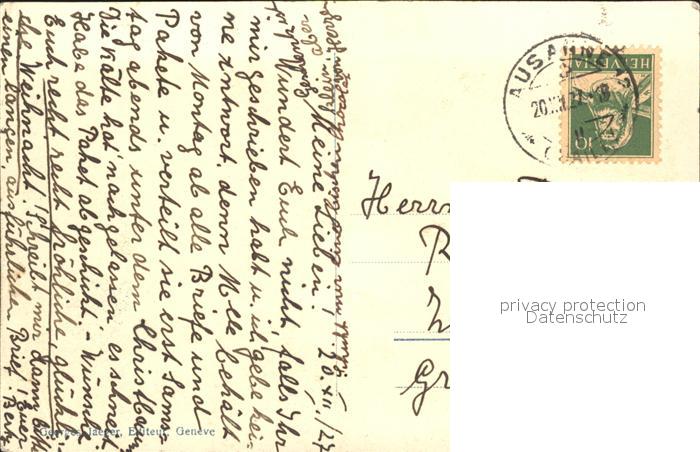 Meine Lieben! 20.XII./27
Wundert Euch nicht, falls Ihr
mir geschrieben habt u. ich gebe kei-
ne Antwort, denn Mlle behält
von Montag ab alle Briefe und
Pakete u. verteilt sie erst Sams-
tag abends unter dem Christbaum
Die Kälte hat nachgelassen, es schneit.
Habe das Paket abgeschickt. - Wünsche
Euch recht recht fröhliche, glückli-
che Weihnacht! Schreibt mir dann bitte
einen langen, ausführlichen Brief! Euer
Georges Jaeger, Editeur, Genève
AUSANN
20.XII.27
HELVETIA
10
Herrn
R
Gr
privacy protection
Datenschutz